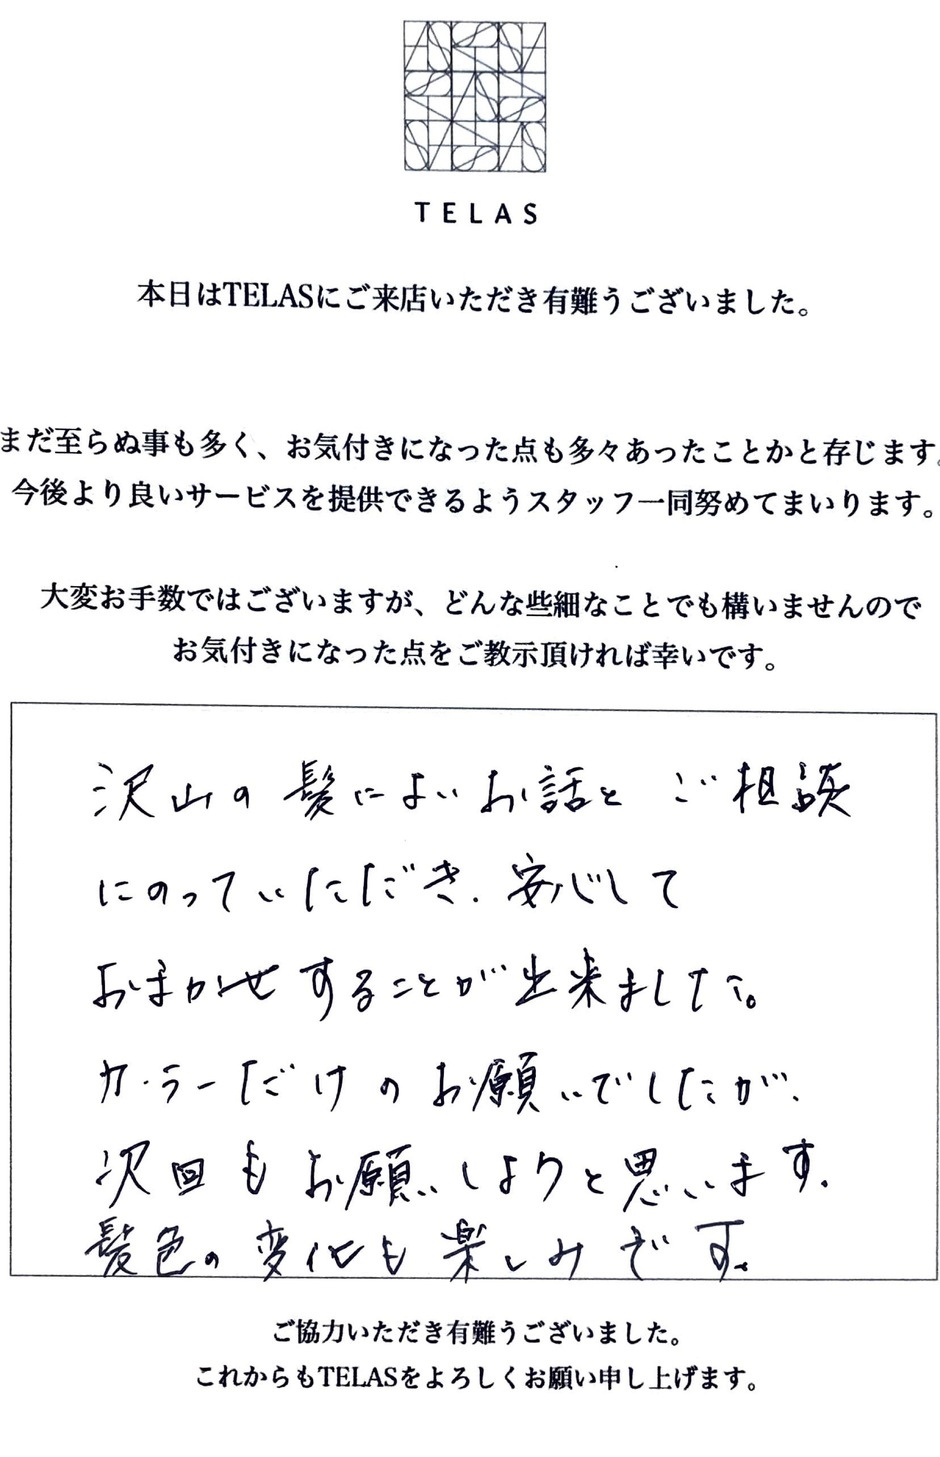 TELAS
本日はTELASにご来店いただき有難うございました。
まだ至らぬ事も多く、お気付きになった点も多々あったことかと存じます。
今後より良いサービスを提供できるようスタッフ一同努めてまいります。
大変お手数ではございますが、どんな些細なことでも構いませんので
お気付きになった点をご教示頂ければ幸いです。
沢山の髪によいお話と ご相談
にのっていただき、安心して
おまかせすることが出来ました。
カラーだけのお願いでしたが、
次回もお願いしようと思います。
髪色の変化も楽しみです。
ご協力いただき有難うございました。
これからもTELASをよろしくお願い申し上げます。